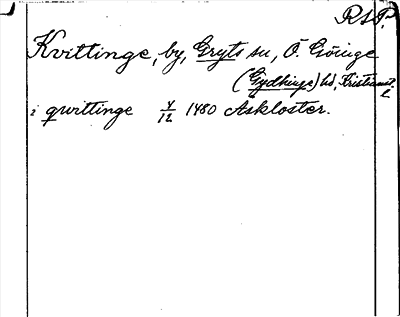 R S P.
Kvittinge, by, Gryts sn, Ö. Göinge
(Gydhinge) hd, Kristianst. l
i qwittinge 4/12 1480 Askloster.